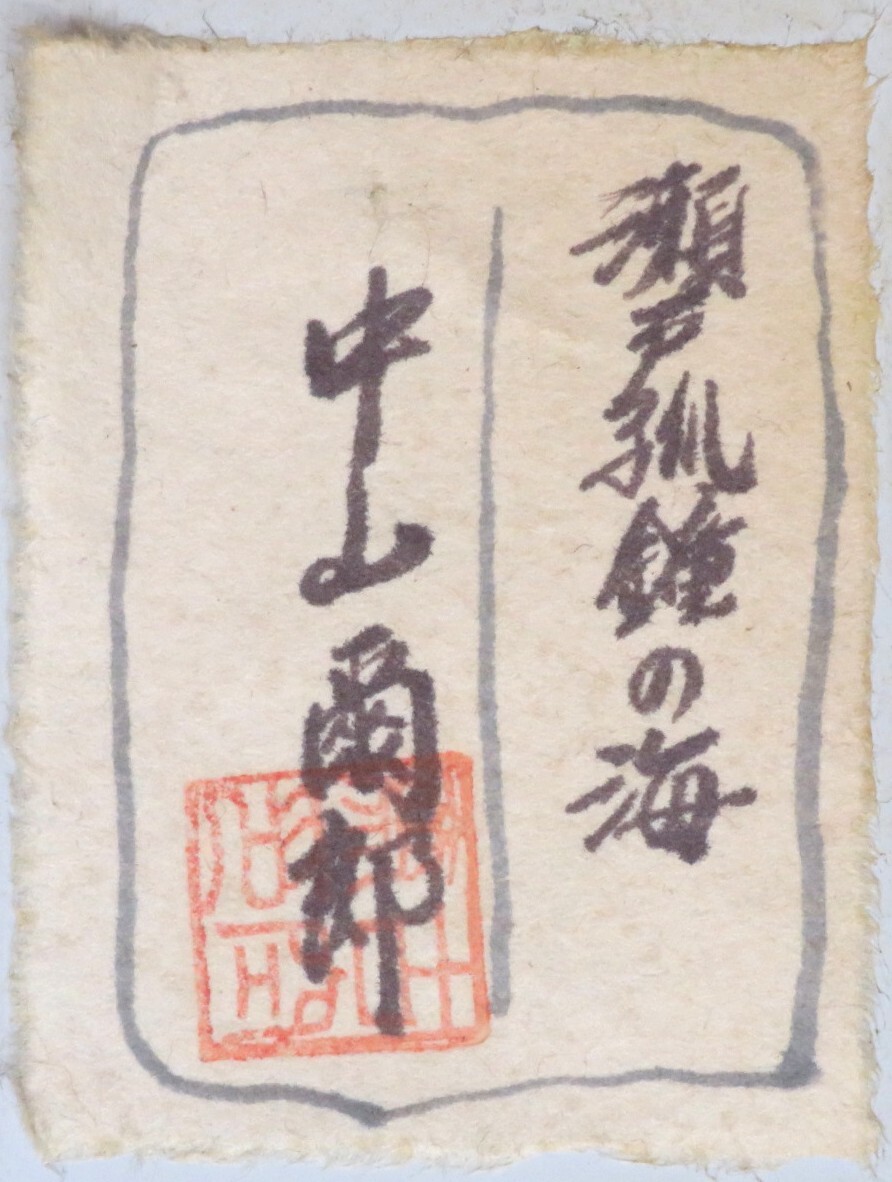 瀬戸孤鐘の海
中山爾郎